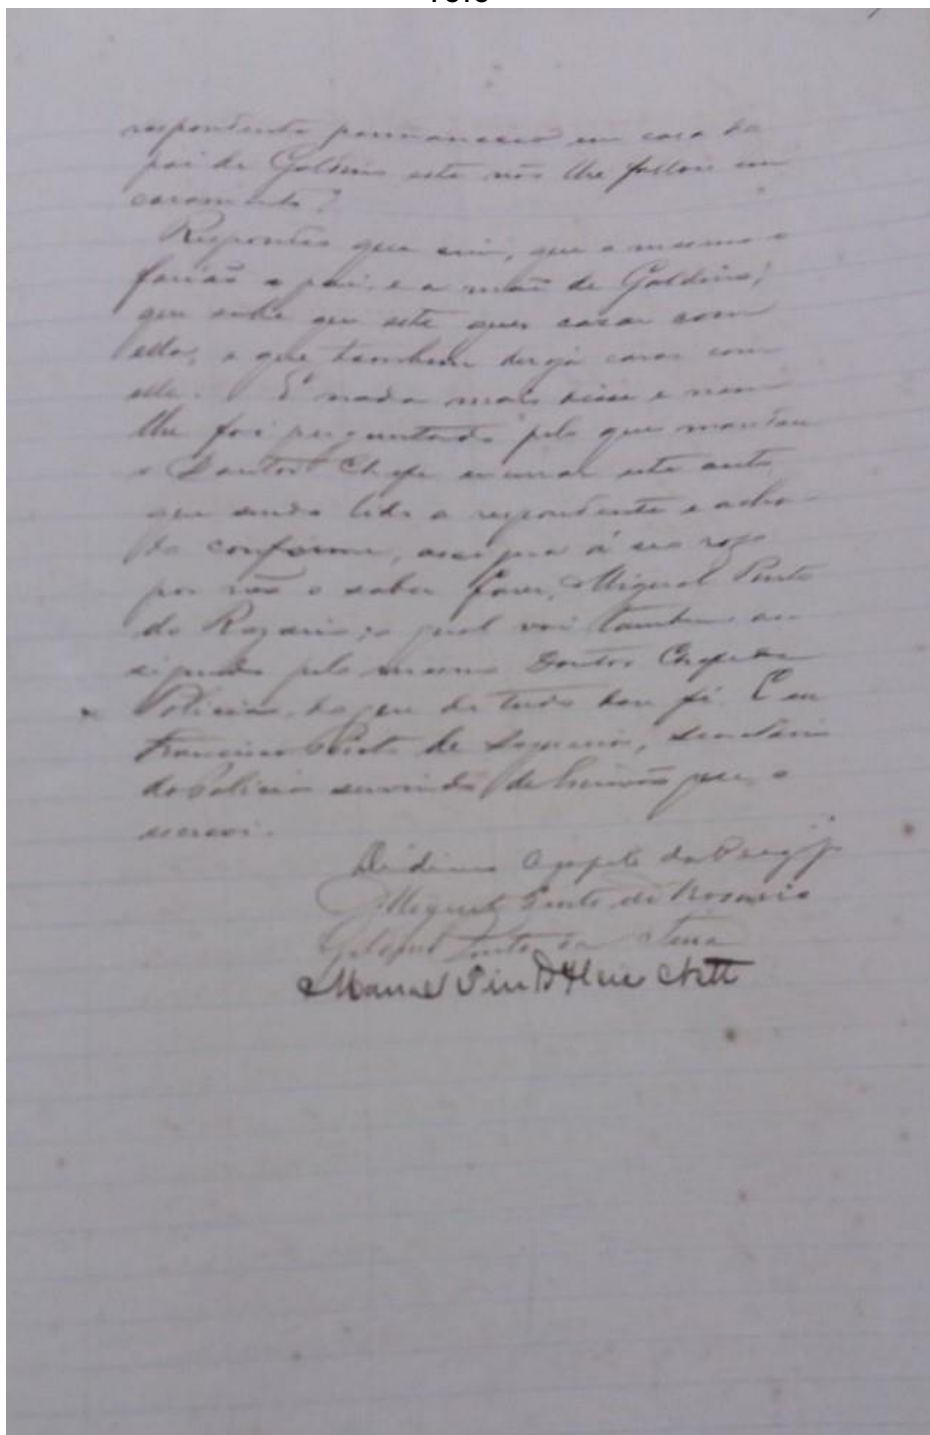 respondente permaneceu em casa do
pai de Galdino este não lhe fallou em
casamento?
Respondeu que sim, que o mesmo
o pai, e a mãe de Galdino;
que sabe que este quer casar com
ella, e que tambem deseja casar com
elle. E nada mais disse e nem
lhe foi perguntado pelo que mandou
o Doutor Chefe encerrar este auto
que sendo lido a respondente e acha-
do conforme, assigna á seu rogo
por não o saber fazer, Miguel Pinto
do Rozario; o qual vai tambem as-
signado pelo mesmo Doutor Chefe de
Policia, do que de tudo dou fé. E eu
Francisco Pinto de , Secretario
da Policia servindo de Escrivão que o
escrevi.
Agapito da Veiga Jr
Miguel Pinto do Rozario
Pinto
Manoel Netto